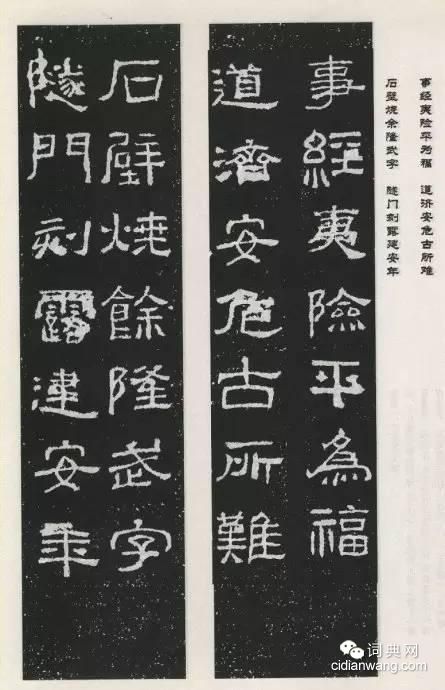 事经夷险平为福 道济安危古所难
石壁烧余隆武字 隧门刻露建安年
事經夷險平為福
道濟安危古所難
石壁燒餘隆武字
隧門刻露建安年
词典网
cidianwang.com